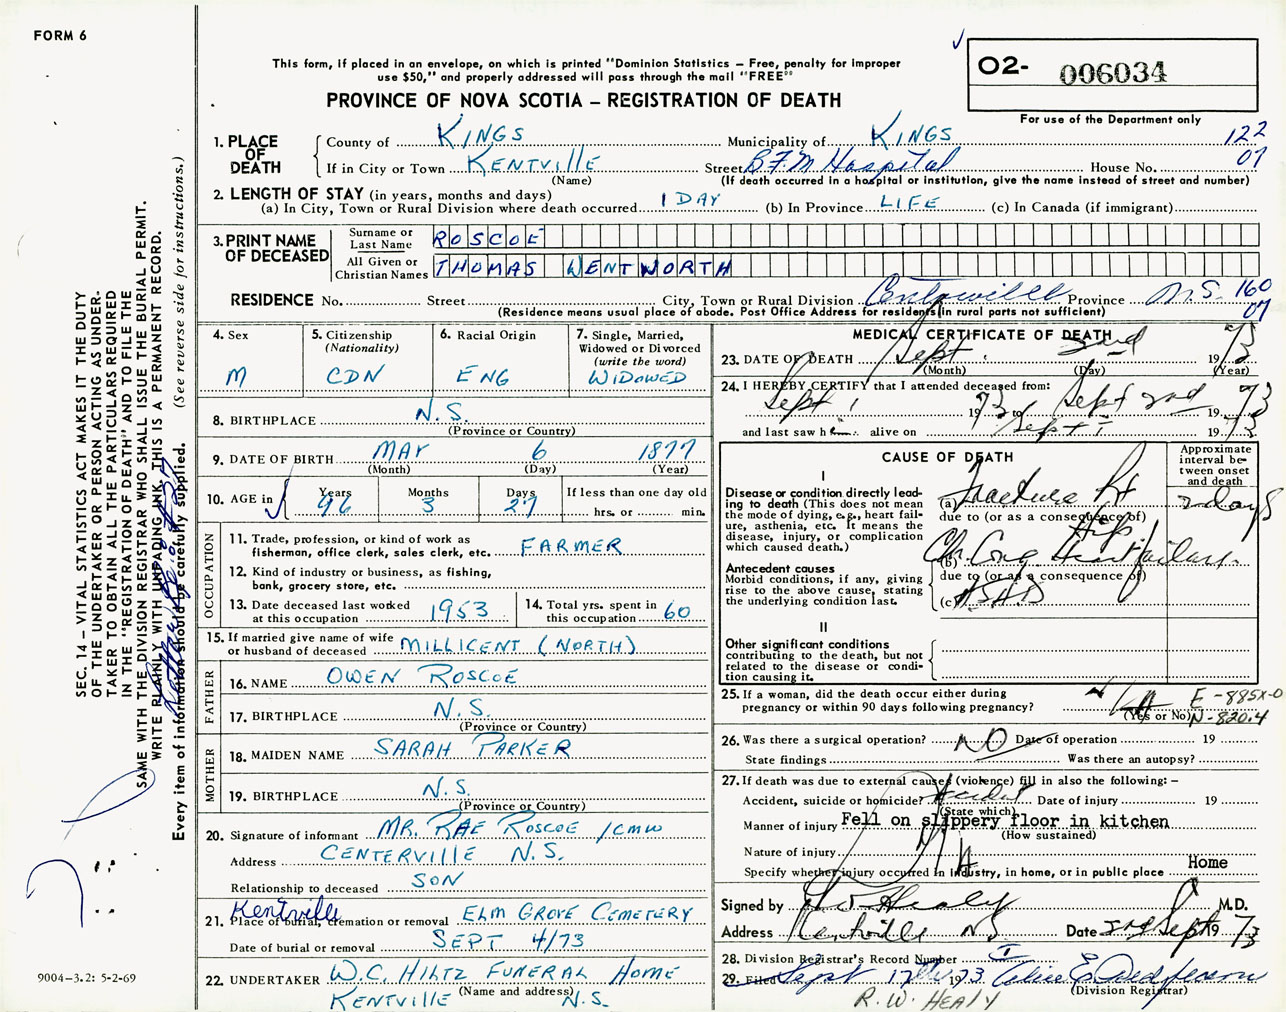 FORM 6
This form, if placed in an envelope, on which is printed "Dominion Statistics – Free, penalty for improper
use $50," and properly addressed will pass through the mail "FREE"
PROVINCE OF NOVA SCOTIA – REGISTRATION OF DEATH
02- 006034
For use of the Department only
122
07
1. PLACE OF DEATH
County of KINGS Municipality of KINGS
If in City or Town KENTVILLE Street B.F.M Hospital House No.
(Name) (If death occurred in a hospital or institution, give the name instead of street and number)
2. LENGTH OF STAY (in years, months and days)
(a) In City, Town or Rural Division where death occurred 1 DAY (b) In Province LIFE (c) In Canada (if immigrant)
3. PRINT NAME OF DECEASED
Surname or Last Name ROSCOE
All Given or Christian Names THOMAS WENTWORTH
RESIDENCE No. Street City, Town or Rural Division Centerville Province N.S. 160
07
(Residence means usual place of abode. Post Office Address for residents in rural parts not sufficient)
4. Sex
M
5. Citizenship
(Nationality)
CDN
6. Racial Origin
ENG
7. Single, Married,
Widowed or Divorced
(write the word)
WIDOWED
8. BIRTHPLACE N.S.
(Province or Country)
9. DATE OF BIRTH MAY 6 1877
(Month) (Day) (Year)
10. AGE in
Years 96
Months 3
Days 27
If less than one day old
hrs. or min.
OCCUPATION
11. Trade, profession, or kind of work as
fisherman, office clerk, sales clerk, etc. FARMER
12. Kind of industry or business, as fishing,
bank, grocery store, etc.
13. Date deceased last worked
at this occupation 1953
14. Total yrs. spent in
this occupation 60
15. If married give name of wife
or husband of deceased MILLICENT (NORTH)
FATHER
16. NAME OWEN ROSCOE
17. BIRTHPLACE N.S.
(Province or Country)
MOTHER
18. MAIDEN NAME SARAH PARKER
19. BIRTHPLACE N.S.
(Province or Country)
20. Signature of informant MR. RAE ROSCOE /CMW
Address CENTERVILLE N.S.
Relationship to deceased SON
Kentville
21. Place of burial, cremation or removal ELM GROVE CEMETERY
Date of burial or removal SEPT 4/73
22. UNDERTAKER W.C. HILTZ FUNERAL HOME
(Name and address)
KENTVILLE N.S.
MEDICAL CERTIFICATE OF DEATH
23. DATE OF DEATH Sept 2nd 1973
(Month) (Day) (Year)
24. I HEREBY CERTIFY that I attended deceased from:
Sept 1 1973 to Sept 2nd 1973
and last saw h alive on Sept 1 1973
CAUSE OF DEATH
Approximate
interval be-
tween onset
and death
I
Disease or condition directly lead-
ing to death (This does not
mean the mode of dying, e.g., heart fail-
ure, asthenia, etc. It means the
disease, injury, or complication
which caused death.)
(a) Fracture Rt Hip 2 days
due to (or as a consequence of)
Antecedent causes
Morbid conditions, if any, giving
rise to the above cause, stating
the underlying condition last.
(b) Ch. Cong Heart failure.
due to (or as a consequence of)
(c) ASHD
II
Other significant conditions
contributing to the death, but not
related to the disease or condi-
tion causing it.
25. If a woman, did the death occur either during
pregnancy or within 90 days following pregnancy?
(Yes or No)
E-885X-0
N-820.4
26. Was there a surgical operation? NO Date of operation 19
State findings Was there an autopsy?
27. If death was due to external causes (violence) fill in also the following:–
Accident, suicide or homicide? Accident Date of injury 19
(State which)
Manner of injury Fell on slippery floor in kitchen
(How sustained)
Nature of injury
Specify whether injury occurred in industry, in home, or in public place Home
Signed by Healy M.D.
Address Kentville NS Date 2nd Sept 1973
28. Division Registrar's Record Number
29. Filed Sept 17th 1973
(Division Registrar)
R.W. HEALY
SEC. 14 – VITAL STATISTICS ACT MAKES IT THE DUTY
OF THE UNDERTAKER OR PERSON ACTING AS UNDER-
TAKER TO OBTAIN ALL THE PARTICULARS REQUIRED
IN THE "REGISTRATION OF DEATH" AND TO FILE THE
SAME WITH THE DIVISION REGISTRAR WHO SHALL ISSUE THE BURIAL PERMIT.
WRITE PLAINLY WITH UNFADING INK, THIS IS A PERMANENT RECORD.
Every item of information should be carefully supplied. (See reverse side for instructions.)
9004-3.2: 5-2-69